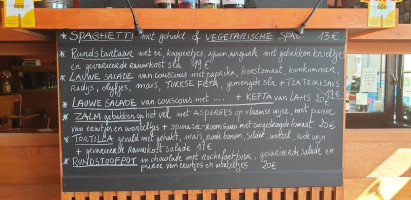 * SPAGHETTI met gehakt of VEGETARISCHE SPAG 13€
* Rundstartaar met ei, kappertjes, ajuin, augurk met gebakken krieltjes
en gevarieerde rauwkost sla 19€
* LAUWE SALADE van couscous met paprika, komkommer,
Radijs, olijfjes, mais, TURKSE FETA, gemengde sla + TZATZIKI SAUS
* LAUWE SALADE van couscous met .... + KEFTA van LAMS 20€
* ZALM gebakken op het vel met ASPERGES op vlaamse wijze, met puree
van erwtjes en worteltjes + spinazie-roomsaus met tomaat 25€
* TORTILLA gevuld met gehakt, mais, rode bonen, selder, wortel, rode ajuin
+ gevarieerde rauwkost salade 17€
* RUNDSTOOFPOT in chocolade met Rochefort bier, gevarieerde salade en
puree van erwtjes en worteltjes 20€